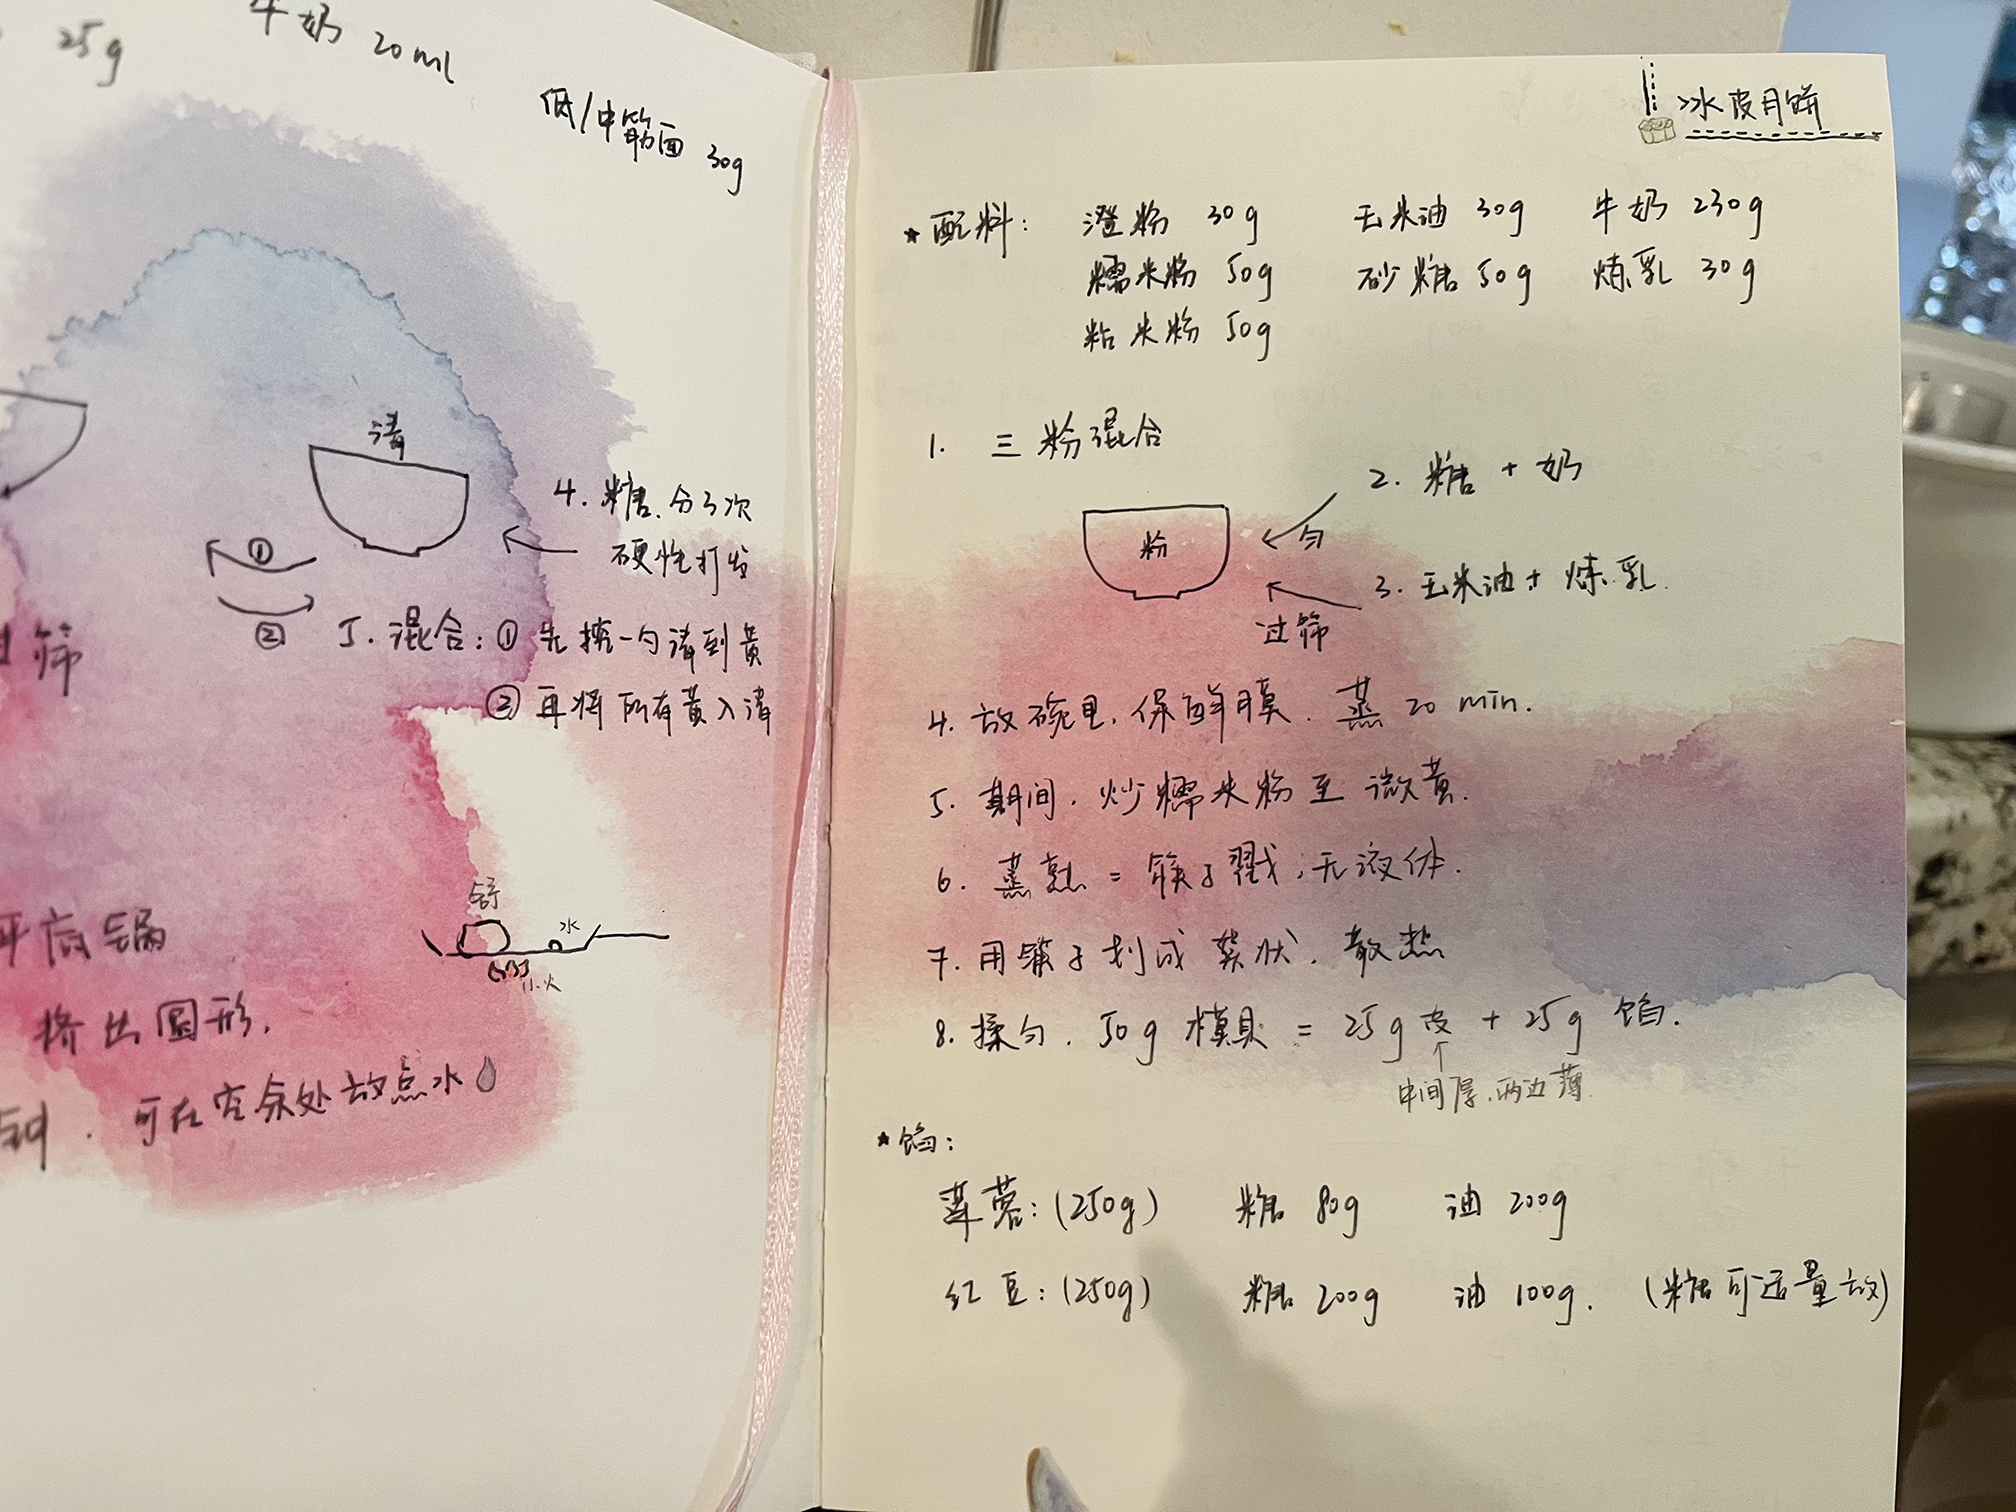 25g 牛奶 20ml
低/中筋面 30g
清
4. 糖.分3次
硬性打发
①
②
5. 混合:① 先挖一勺清到黄
② 再将所有黄入清
筛
水
小火
平底锅
挤出圆形.
可在空余处放点水
冰皮月饼
★配料: 澄粉 30g 玉米油 30g 牛奶 230g
糯米粉 50g 砂糖 50g 炼乳 30g
粘米粉 50g
1. 三粉混合
2. 糖 + 奶
粉
匀
3. 玉米油 + 炼乳.
过筛
4. 放碗里,保鲜膜.蒸 20 min.
5. 期间,炒糯米粉至微黄.
6. 蒸熟 = 筷子戳,无液体.
7. 用筷子划成 状.散热
8. 揉匀.50g 模具 = 25g 皮 + 25g 馅.
中间厚.两边薄.
★馅:
莲蓉:(250g) 糖 80g 油 200g
红豆:(250g) 糖 200g 油 100g. (糖可适量放)